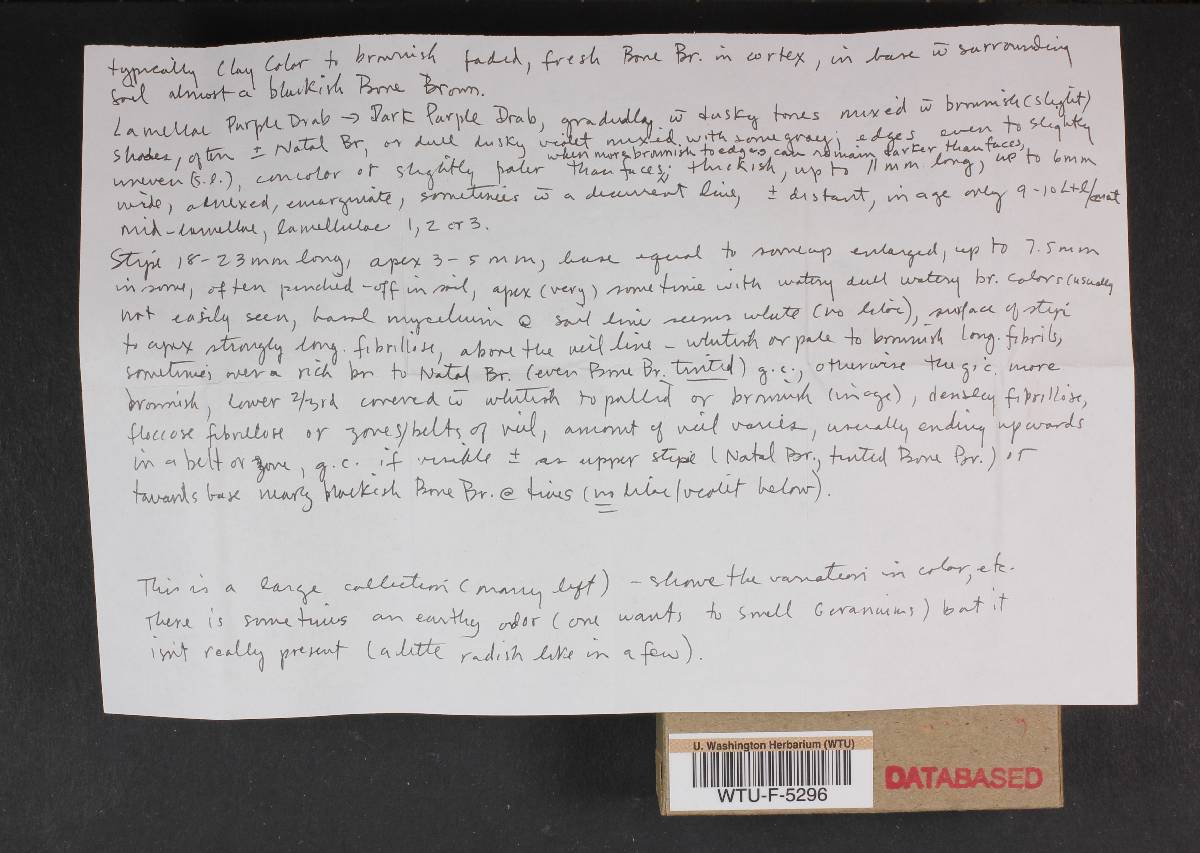 typically Clay Color to brownish faded, fresh Bone Br. in cortex, in base w̄ surrounding
soil almost a blackish Bone Brown.
Lamellae Purple Drab → Dark Purple Drab, gradually w̄ dusky tones mixed w̄ brownish (slight)
shades, often ± Natal Br, or dull dusky violet mixed with some gray; edges even to slightly
uneven (s.l.), concolor or slightly paler than faces; when more brownish to edges can remain darker than faces, thickish, up to 11mm long, up to 6mm
wide, adnexed, emarginate, sometimes w̄ a decurrent line, ± distant, in age only 9-10 L+l/
mid-lamellae, lamellulae 1, 2 or 3.
Stipe 18-23mm long, apex 3-5 mm, base equal to enlarged, up to 7.5mm
in some, often pinched-off in soil, apex (very) sometime with watery dull watery br. colors (usually
not easily seen, basal mycelium @ soil line seems white (no lilac), surface of stipe
to apex strongly long. fibrillose, above the veil line - whitish or pale to brownish long. fibrils,
sometimes over a rich br to Natal Br. (even Bone Br. tinted) g.c., otherwise the g.c. more
brownish, lower 2/3rd covered w̄ whitish to pallid or brownish (in age), densely fibrillose,
floccose fibrillose or zones/belts of veil, amount of veil varies, usually ending upwards
in a belt or zone, g.c. if visible ± as upper stipe (Natal Br., tinted Bone Br.) or
towards base nearly blackish Bone Br. @ times (no lilac/violet below).
This is a large collection (many left) - shows the variation in color, etc.
There is sometimes an earthy odor (one wants to smell Geraniums) but it
isn't really present (a little radish like in a few).
U. Washington Herbarium (WTU)
WTU-F-5296
DATABASED